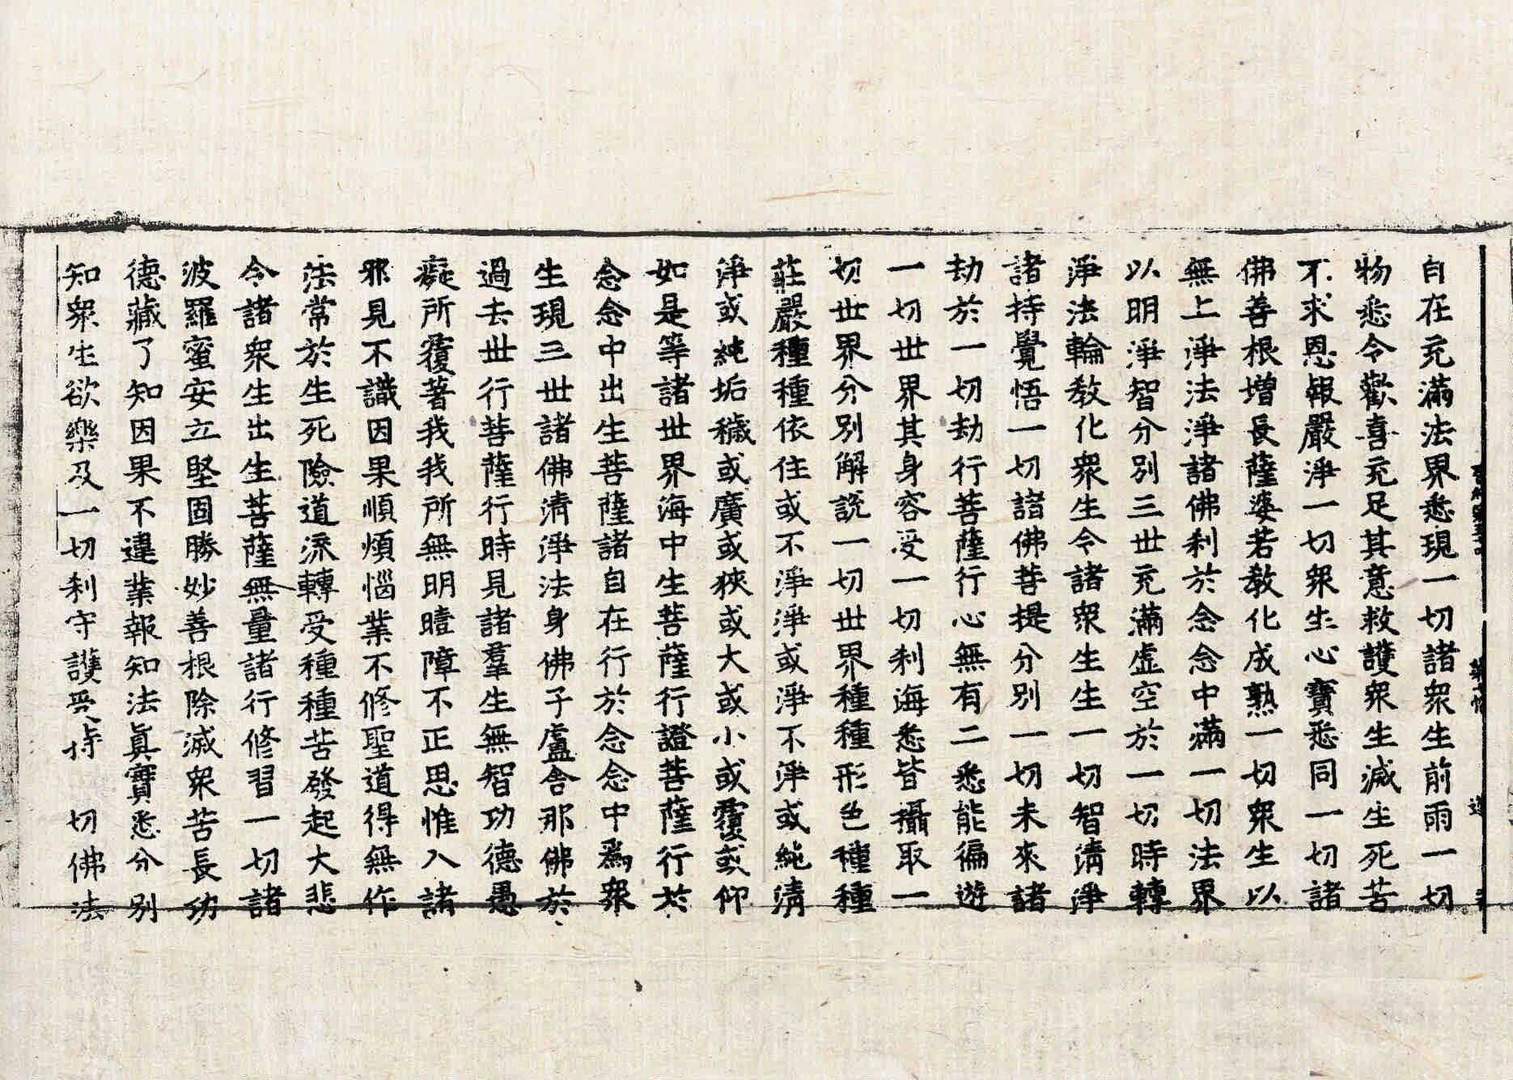 自在充滿法界悉現一切諸衆生前雨一切
物悉令歡喜充足其意救護衆生滅生死苦
不求恩報嚴淨一切衆生心寶悉同一切諸
佛善根增長薩婆若教化成熟一切衆生以
無上淨法淨諸佛刹於念念中滿一切法界
以明淨智分別三世充滿虛空於一切時轉
淨法輪教化衆生令諸衆生生一切智淸淨
諸持覺悟一切諸佛菩提分別一切未來諸
劫於一切劫行菩薩行心無有二悉能徧遊
一切世界其身容受一切刹海悉皆攝取一
切世界分別解說一切世界種種形色種種
莊嚴種種依住或不淨淨或淨不淨或純淸
淨或純垢穢或廣或狹或大或小或覆或仰
如是等諸世界海中生菩薩行證菩薩行於
念念中出生菩薩諸自在行於念念中爲衆
生現三世諸佛淸淨法身佛子盧舍那佛於
過去世行菩薩行時見諸羣生無智功德愚
癡所覆著我我所無明曀障不正思惟入諸
邪見不識因果順煩惱業不修聖道得無作
法常於生死險道流轉受種種苦發起大悲
令諸衆生出生菩薩無量諸行修習一切諸
波羅蜜安立堅固勝妙善根除滅衆苦長功
德藏了知因果不違業報知法眞寶悉分別
知衆生欲樂及一切刹守護受持 切佛法